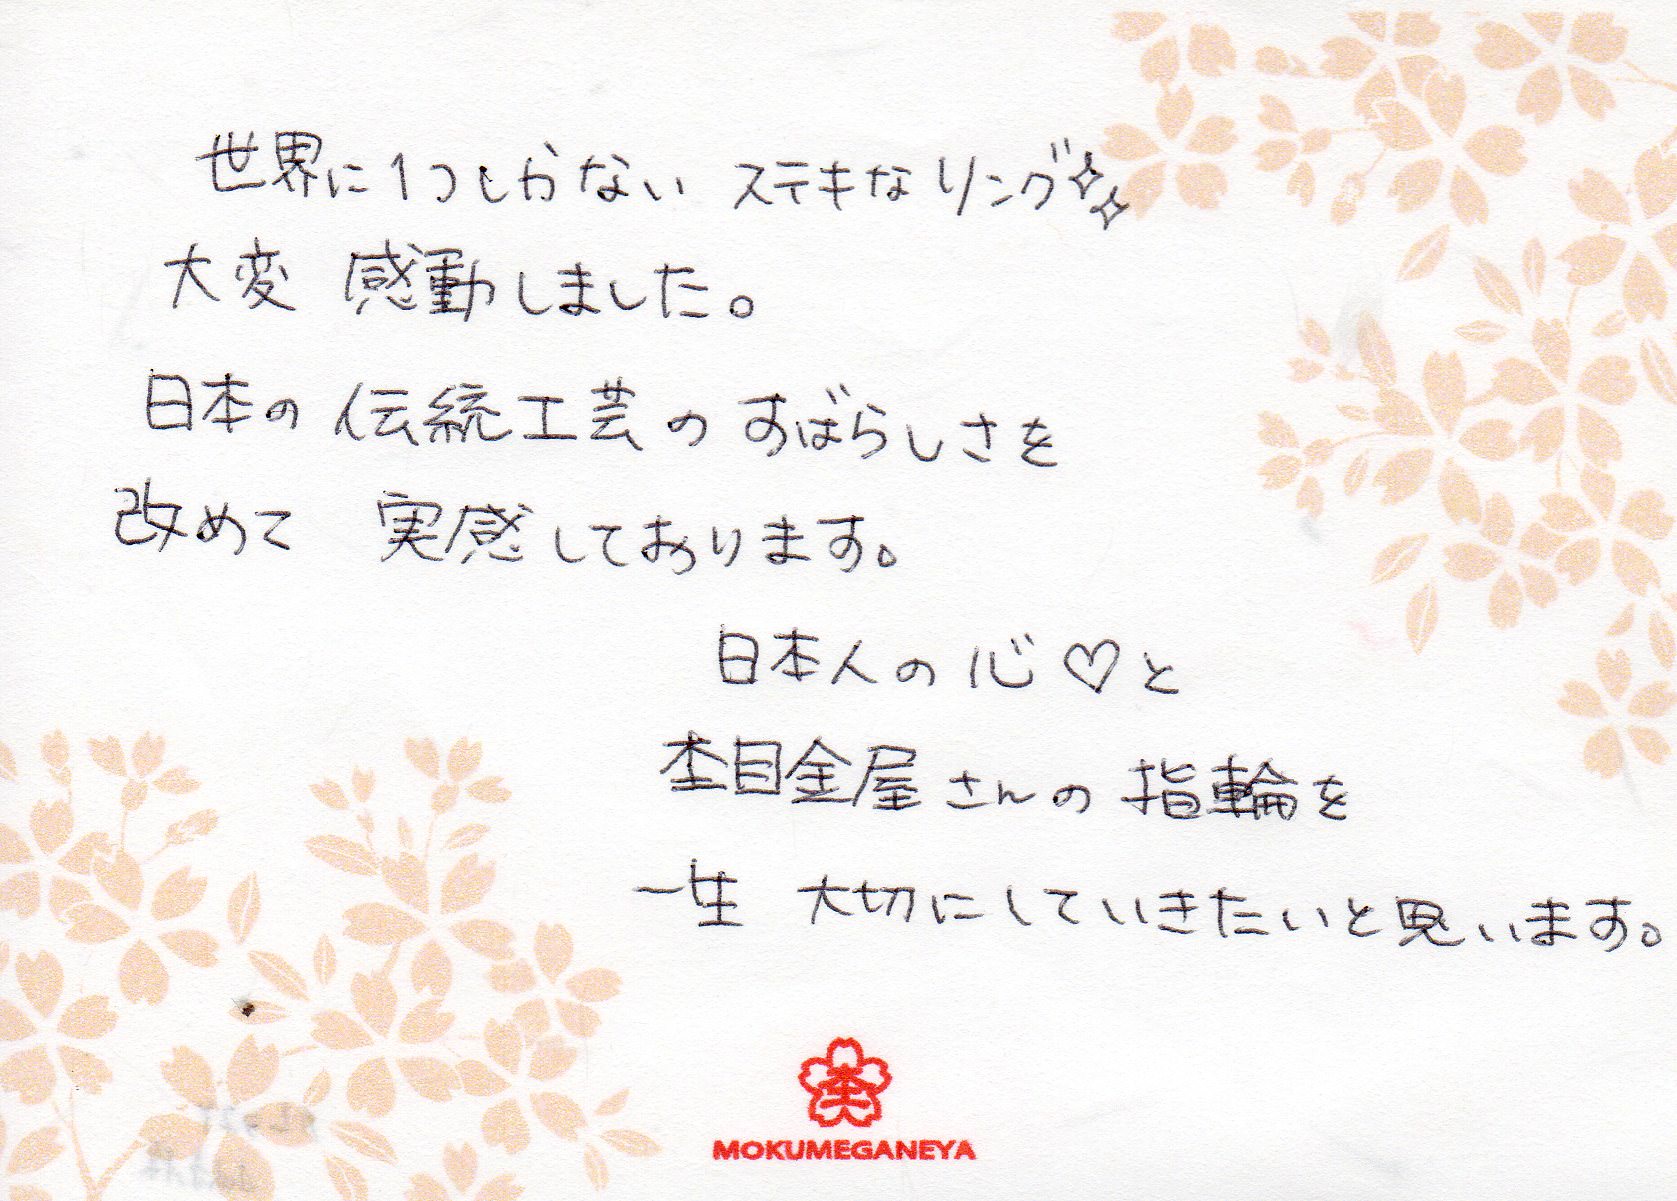 世界に1つしかない ステキなリング
大変 感動しました。
日本の 伝統工芸の すばらしさを
改めて 実感しております。
日本人の 心♡と
杢目金屋さんの 指輪を
一生 大切にしていきたいと思います。
杢
MOKUMEGANEYA